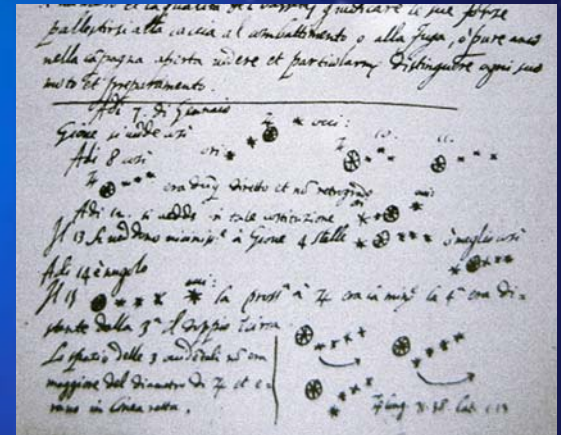 pallestirsi alla caccia al combattimento o alla fuga, ò pure anco
nella campagna aperta vedere et particolarmᵗᵉ distinguere ogni suo
moto et preparamento.
Adi 7. di Gennaio
Gioue si vedde così
♃ occi:
Adi 8 così ori:
♃ 10. 11.
♃ era dūq diretto et nō retrogrado
Adi 12. si vedde in tale costituzione
Il 13 si veddono a Gioue 4 stelle ò meglio così
Adi 14 è nugolo
Il 15 la prossᵃ à ♃ era la minᵉ la 4ᵃ era di=
stante dalla 3ᵃ il doppio circa
Lo spatio delle 3 nō era
maggiore del diametro di ♃ et e=
rano in linea retta.
♃ long. 71.38. Lat. 1.13